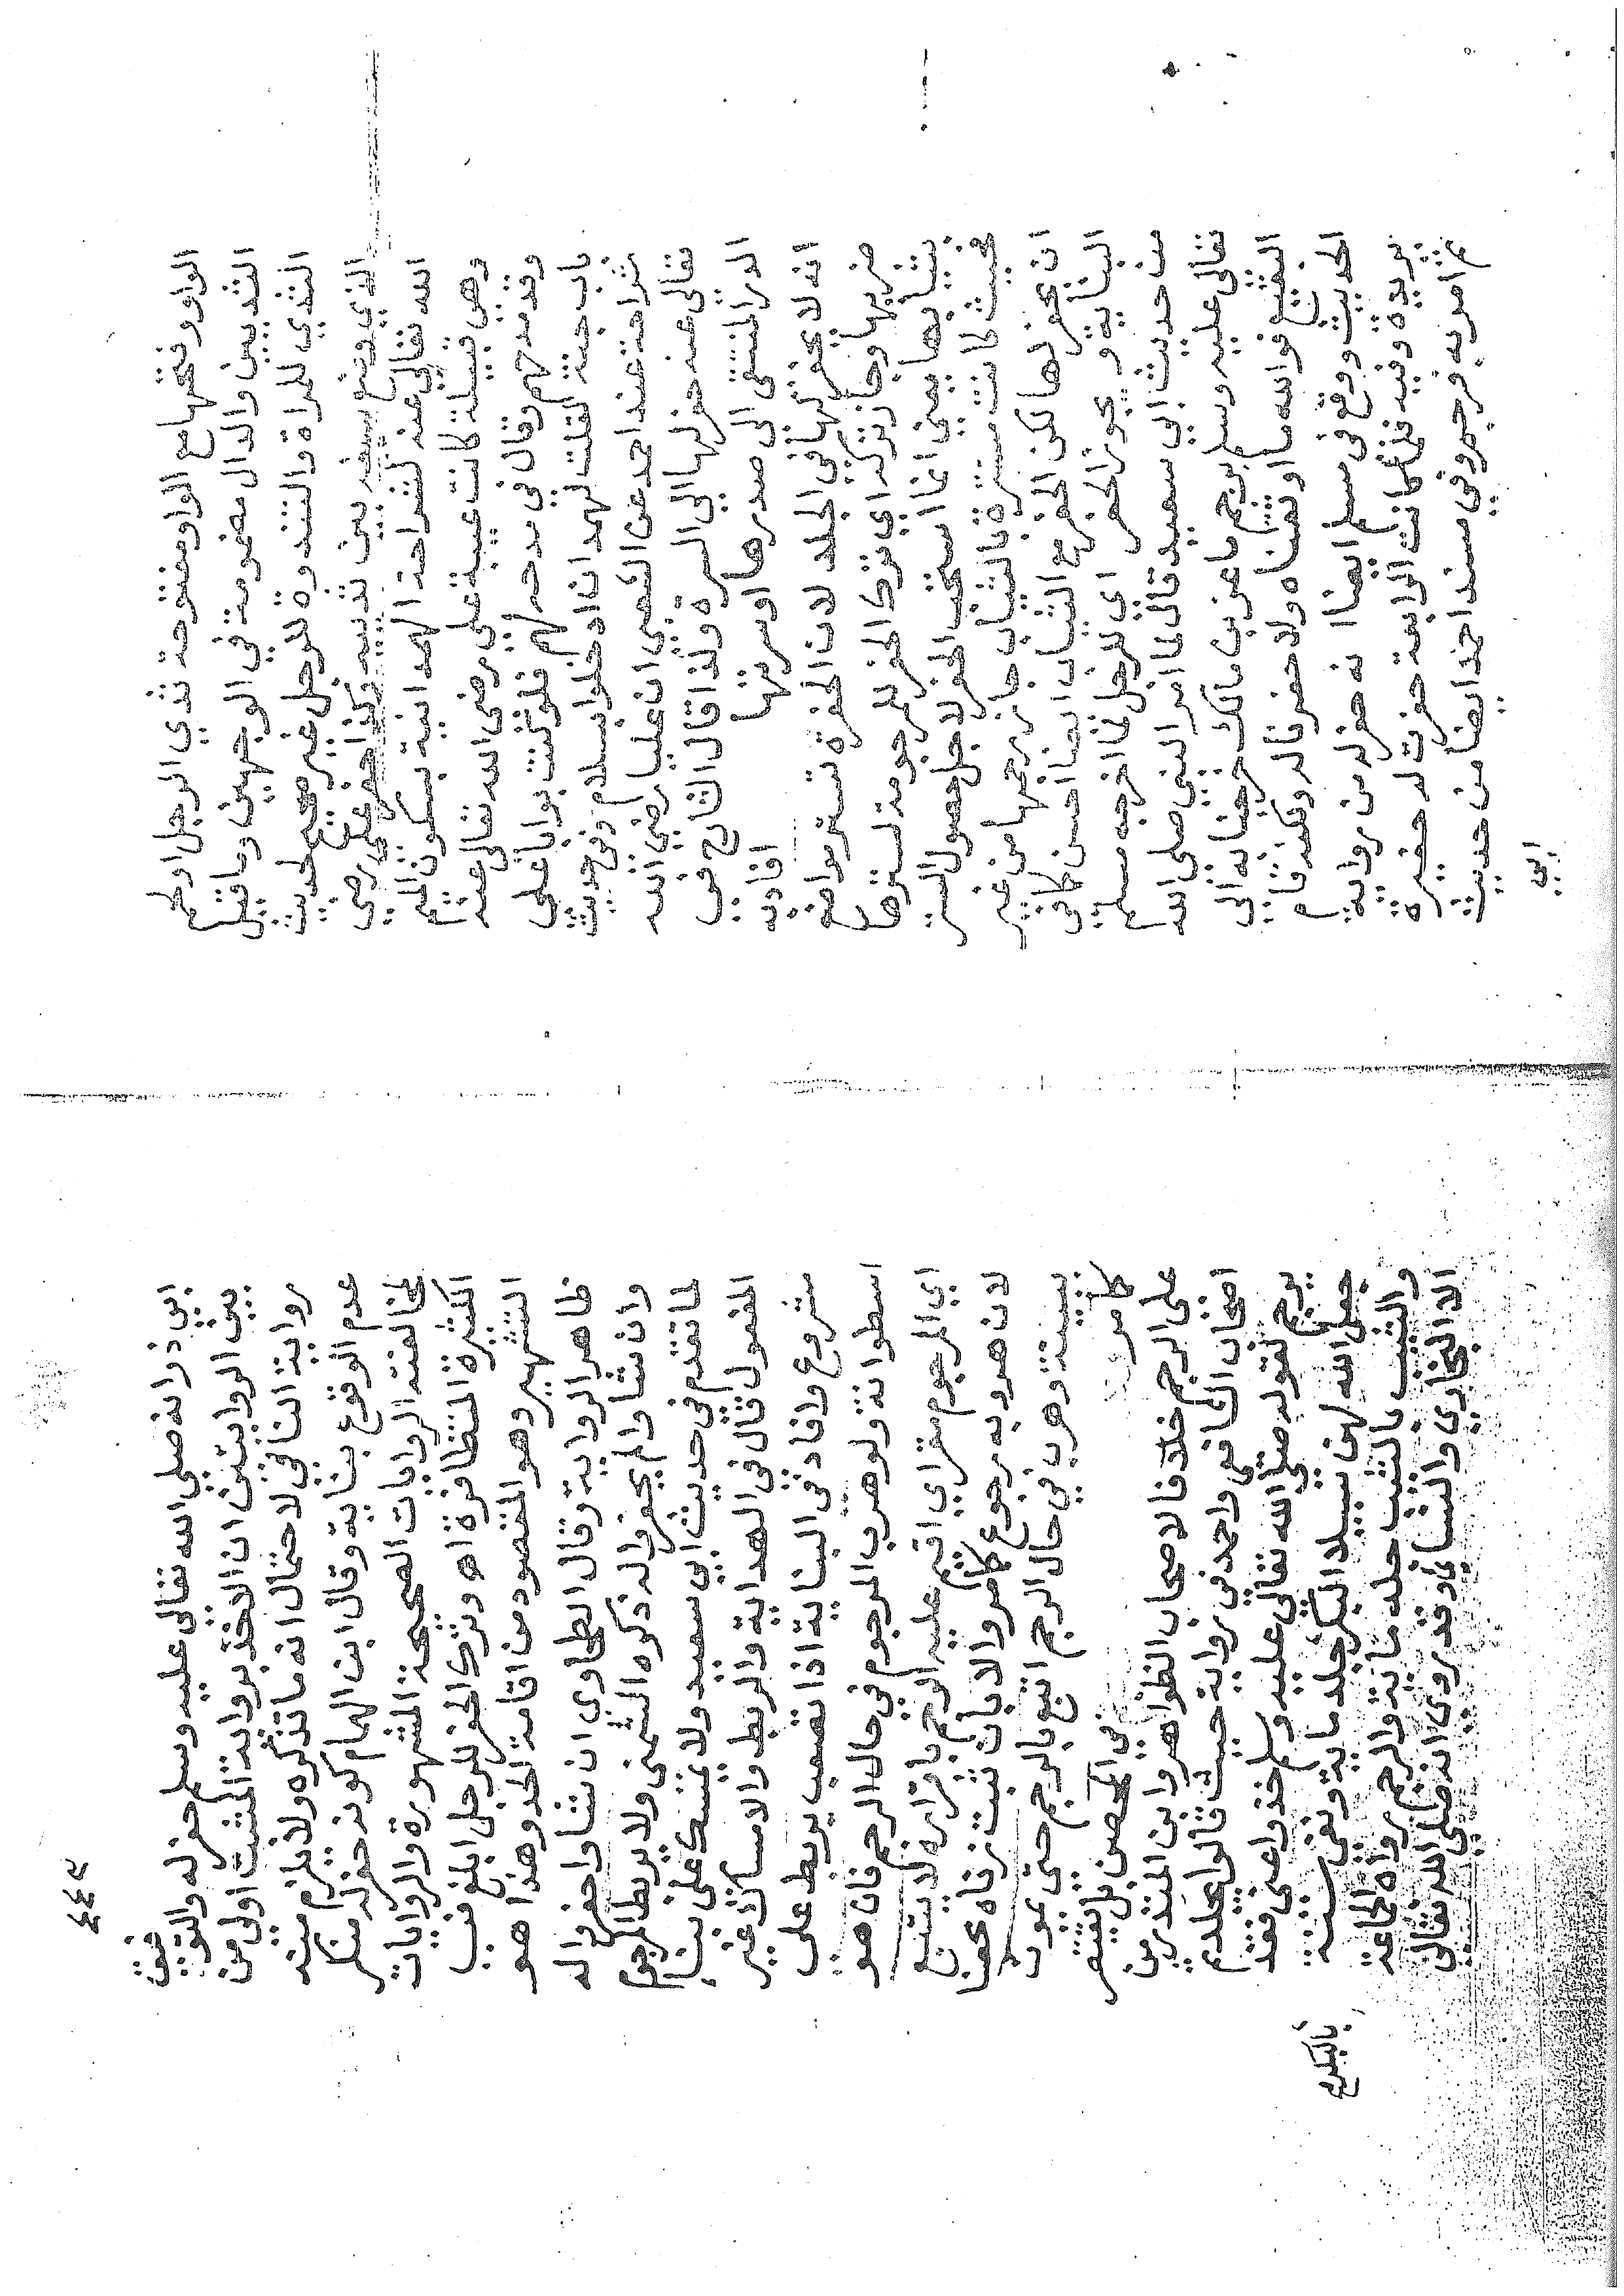 الواو وفتحها مع الواو مفتوحة ثدي الرجل او لحم
الثديين والدال مضمومة في الوجهين وما قيل
الثدي للمراة والثندوة للرجل غير صحيح لحديث
الذي وضع سيفه بين ثدييه وكذا حفر علي رضي
الله تعالى عنه لشراحة الهمدانية بسكون الميم
وهي قبيلة كانت عيبة علي رضي الله تعالى عنه
وقد مدحهم وقال في مدحه لهم فلو كنت بوابا على
باب جنة لقلت لهمدان ادخلوا بسلام وفي حديث
شراحة عند احمد عن الشعبي ان عليا رضي الله
تعالى عنه حفر لها الى السرة ولذا قال الشارح في
الدر المنتقى الى صدرها او سرتها افاد به
انه لا يحفر لها في الجلد لان الحفرة تستر مواضع
ضربها وجاز تركه اي ترك الحفر للمرجومة لسترها
بثيابها يعني انما استحب الحفر لاجل حصول الستر
فحيث كانت مستترة بالثياب جاز رجمها من غير
ان يحفر لها لكن الحفر مع الثياب ايضا احسن كما في
النهاية و يجوز الحفر اي للرجل لما اخرجه مسلم
من حديث ابي سعيد قال لما امر النبي صلى الله
تعالى عليه وسلم برجم ماعز بن مالك خرجنا به الى
البقيع فوالله ما اوثقناه ولا حفرنا له ولكنه قام
الحديث ووقع في مسلم ايضا انه حفر له من رواية
بريدة وفيه فلما كانت الرابعة حفرت له حفيرة
ثم امر به فرجم وفي مسند احمد ايضا من حديث
ابي
٤٤٩
ابي ذر انه صلى الله تعالى عليه وسلم حفر له والتوفيق
بين الروايتين ان الاخذ برواية المثبت اولى من
رواية النافي لاحتمال انه ما تذكره ولا يلزم منه
عدم الوقوع بنايه وقال ابن الهمام كونه حفر له منكر
لمخالفته الروايات الصحيحة المشهورة والروايات
الكثيرة المتظافرة اه وترك الحفر للرجل ابلغ في
التشهير وهو المقصود من اقامة الحد وهذا هو
ظاهر الرواية وقال الطحاوي ان شاوا حفروا له
وان شاوا لم يحفروا له ذكره الشمني ولا يربط المرجوم
لما تقدم في حديث ابي سعيد ولا يمسك على بنا
المفعول قال في الهداية والربط والامساك غير
مشروع وافاد في البناية اذا تصعب يربط على
اسطوانة ولو هرب المرجوم في حال الرجم فان هو
اي المرجوم مقرا اي اقيم عليه الرجم باقراره لا يتبع
لان هروبه رجوع كما مر والا بان ثبت زناه
ببينة وهرب في حال الرجم اتبع بالرجم حتى يموت
كما مر في المحصن بل يقتصر
على الرجم خلافا لاصحاب الظواهر وابن المنذر من
اصحاب الشافعي واحمد في رواية حيث قالوا يجلد ثم
يرجم لقوله صلى الله تعالى عليه وسلم خذوا عني فقد
جعل الله لهن سبيلا البكر جلد ماية ونفي سنة
والثيب بالثيب جلد ماية والرجم رواه الجماعة
الا البخاري والنسائي وقد روي انه صلى الله تعالى
بالبكر صح